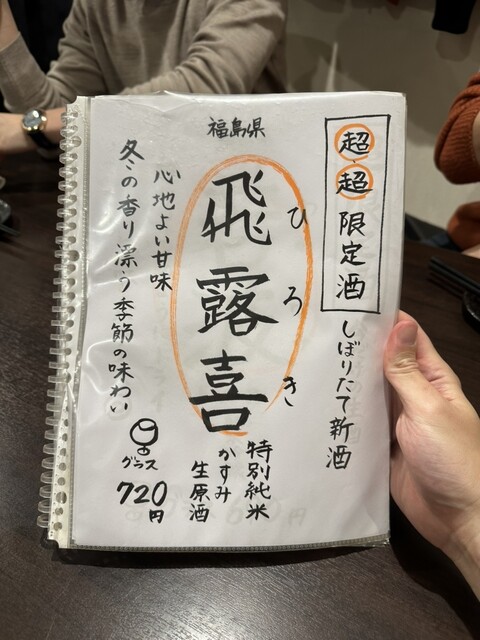 超・超 限定酒
しぼりたて新酒
福島県
飛露喜
ひろき
特別純米
かすみ
生原酒
心地よい甘味
冬の香り漂う季節の味わい
グラス
720円